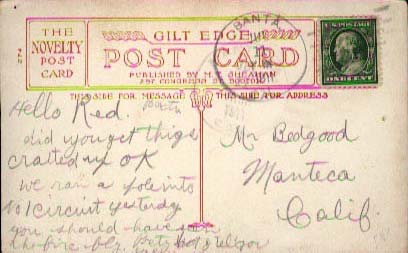 THE
NOVELTY
POST
CARD
GILT EDGE
POST CARD
PUBLISHED BY M.T. SHEAHAN
BOSTON
SANTA
U.S. POSTAGE
ONE CENT
THIS SIDE FOR MESSAGE
THIS SIDE FOR ADDRESS
Hello Red.
did you get things
crated up OK
we ran a pole into
No 1 circuit yesterday
you should have seen
the fire fly
Mr Bedgood
Manteca
Calif.